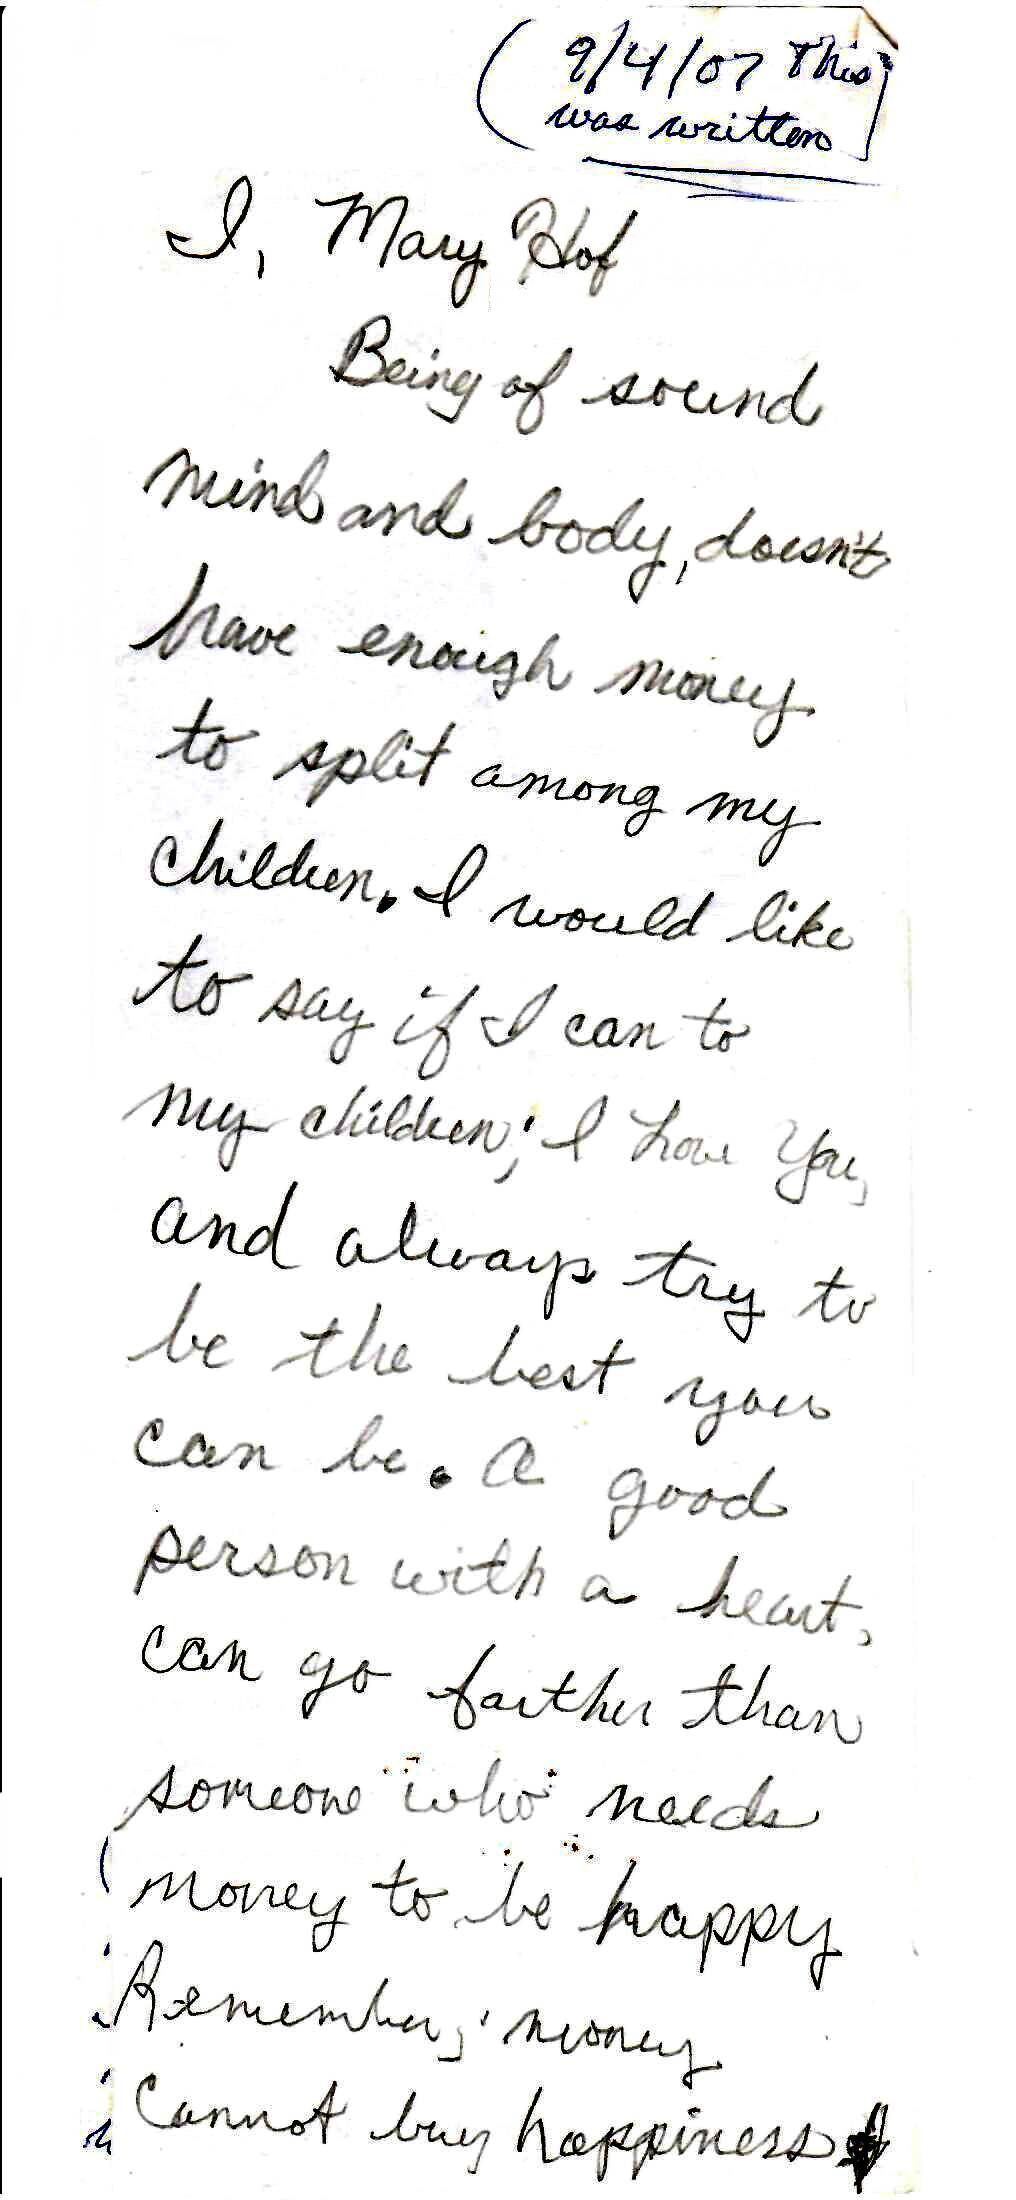 (9/4/07 This
was written)
I, Mary Hof
Being of sound
mind and body, doesn't
have enough money
to split among my
children. I would like
to say if I can to
my children; I Love You,
and always try to
be the best you
can be. A good
person with a heart,
can go farther than
someone who needs
money to be happy
Remember, money
cannot buy happiness